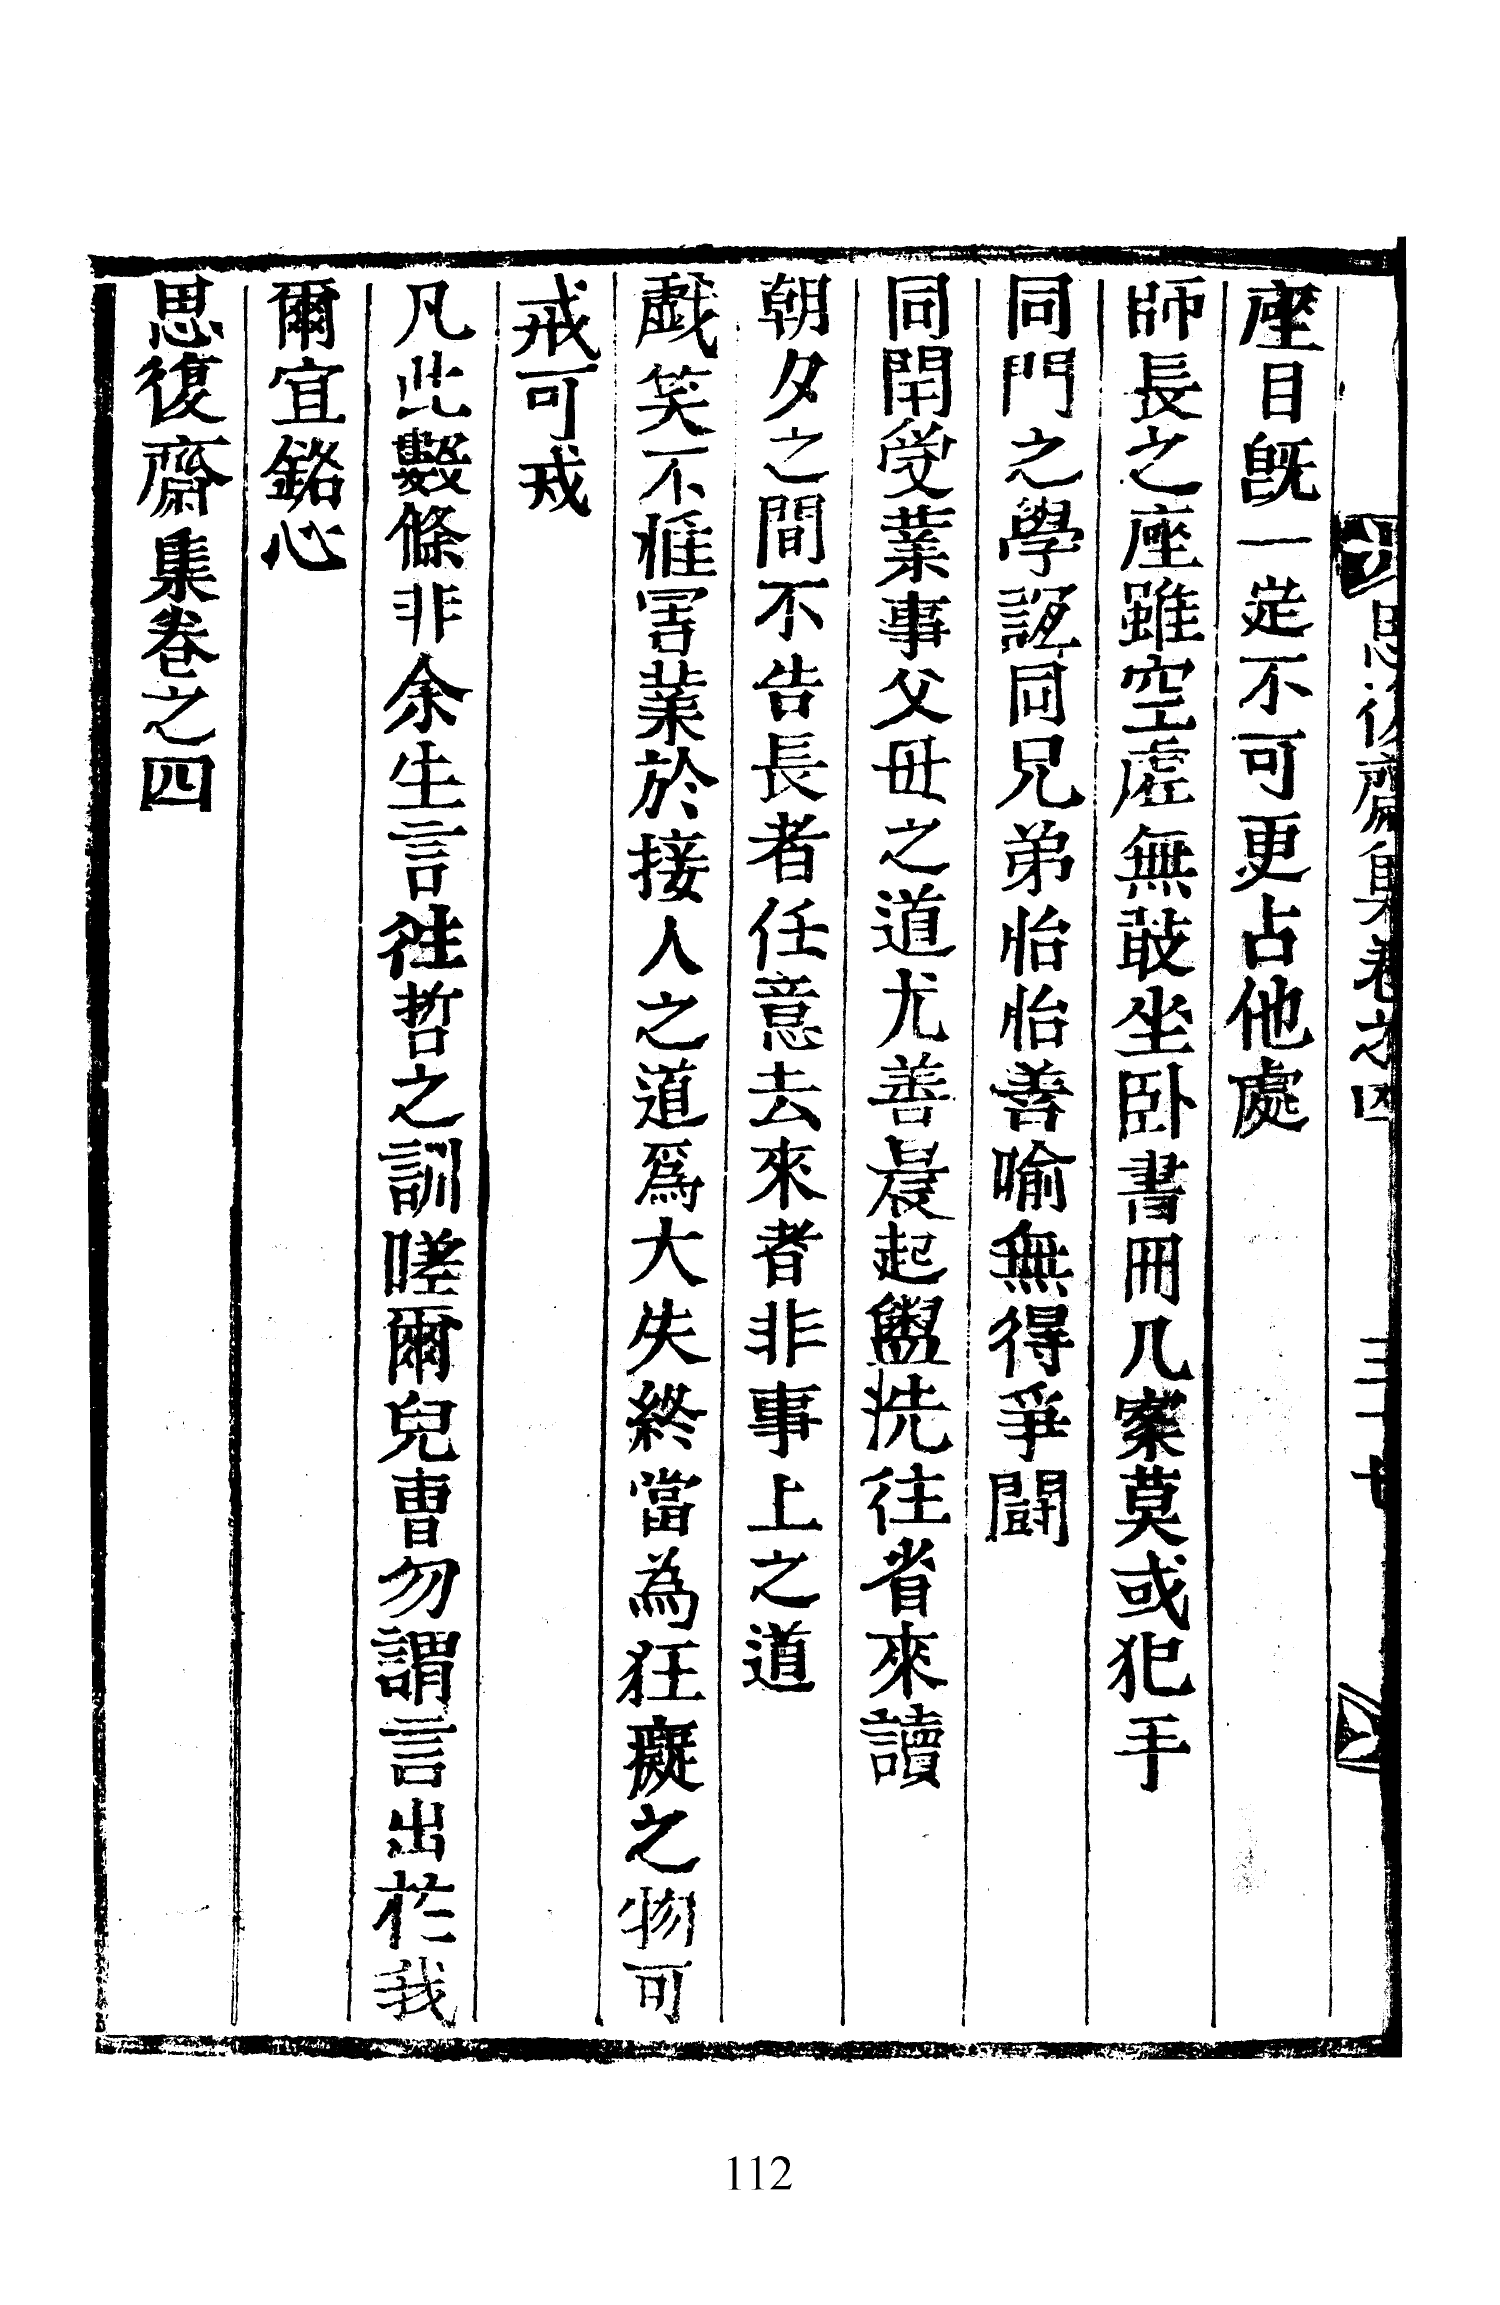 思復齋集卷之四 三十七
座目旣一定不可更占他處
師長之座雖空虛無敢坐臥書冊几案莫或犯手
同門之學誼同兄弟怡怡善喻無得爭鬪
同閈受業事父母之道尤善晨起盥洗往省來讀
朝夕之間不告長者任意去來者非事上之道
戱笑不惟害業於接人之道爲大失終當為狂癡之物可
戒可戒
凡此數條非余生言徃哲之訓嗟爾兒曺勿謂言出於我
爾宜銘心
思復齋集卷之四
112